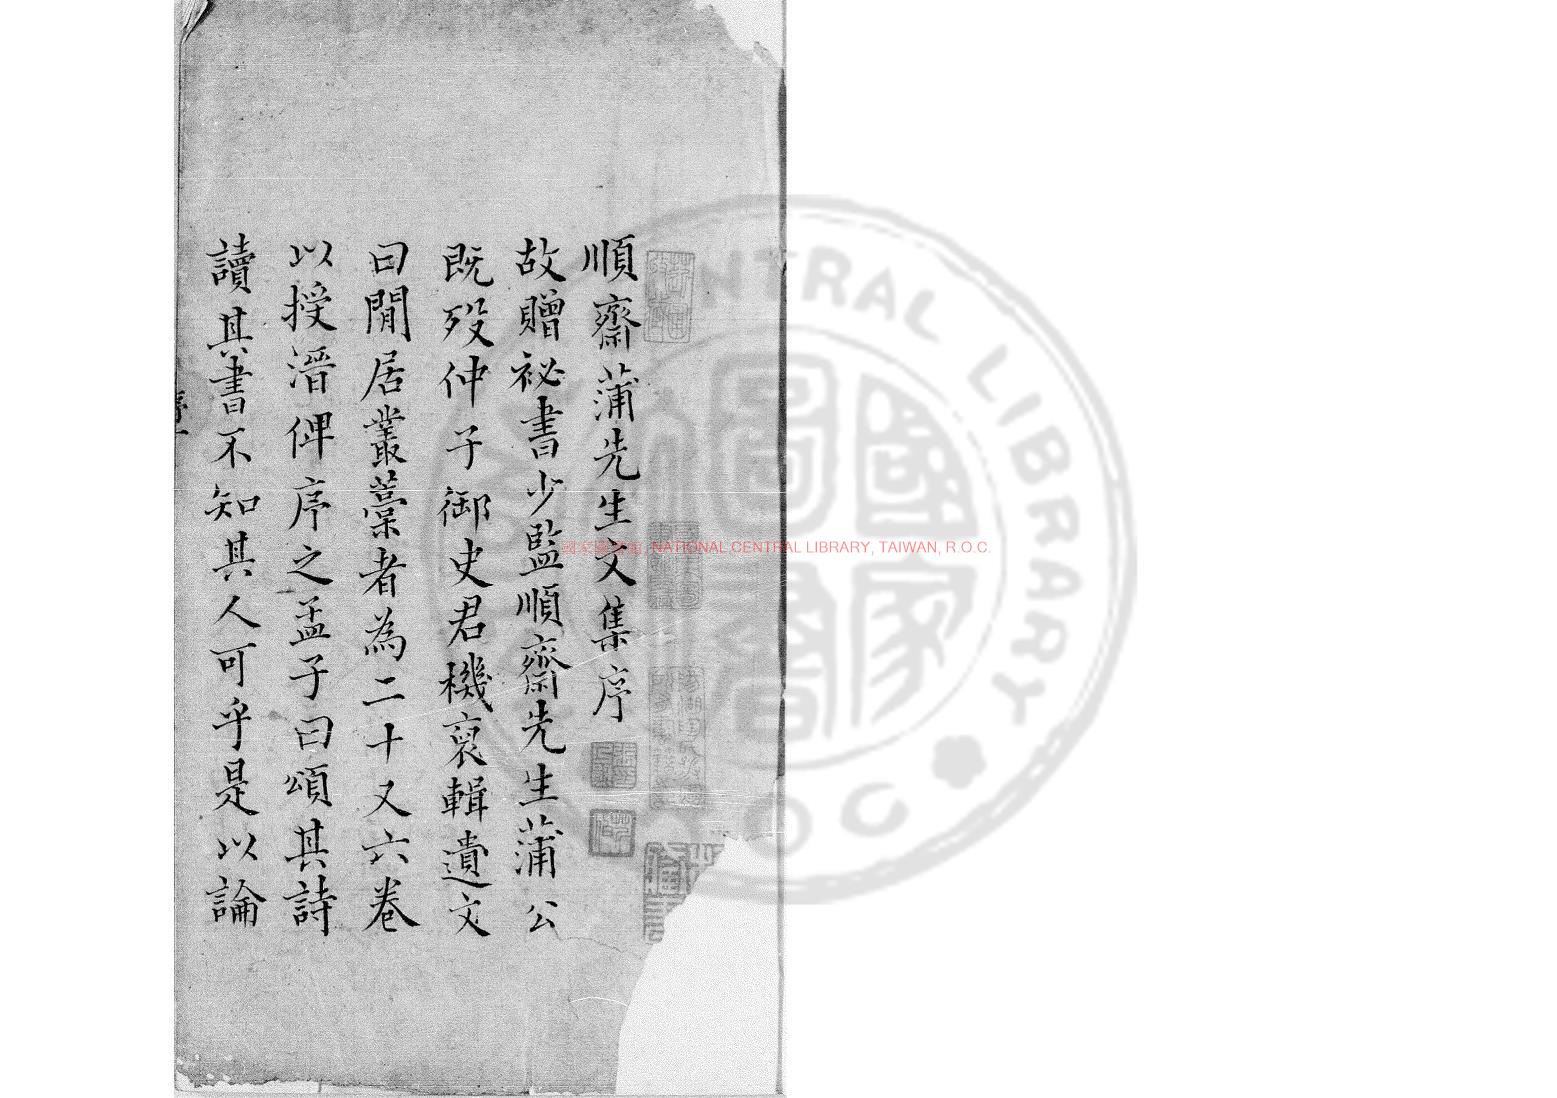 順齋蒲先生文集序
故贈祕書少監順齋先生蒲公
既歿仲子御史君機裒輯遺文
曰閒居叢藁者為二十又六卷
以授溍俾序之孟子曰頌其詩
讀其書不知其人可乎是以論
NATIONAL CENTRAL LIBRARY, TAIWAN, R.O.C.